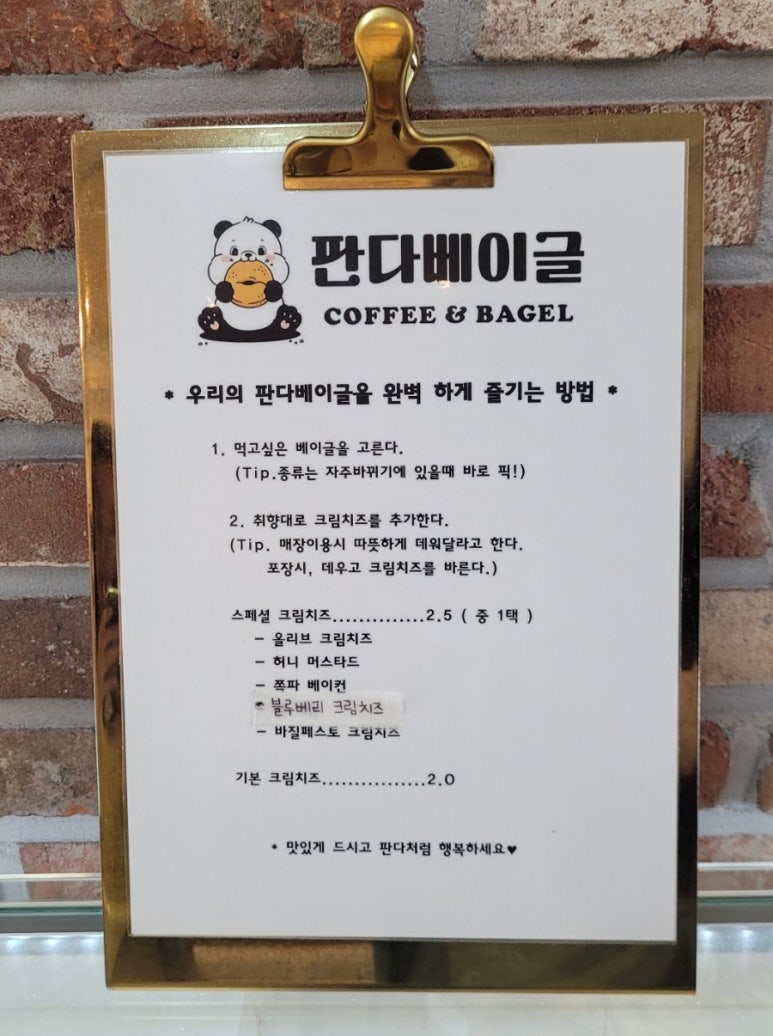 판다베이글
COFFEE & BAGEL
* 우리의 판다베이글을 완벽 하게 즐기는 방법 *
1. 먹고싶은 베이글을 고른다.
(Tip.종류는 자주바뀌기에 있을때 바로 픽!)
2. 취향대로 크림치즈를 추가한다.
(Tip. 매장이용시 따뜻하게 데워달라고 한다.
포장시, 데우고 크림치즈를 바른다.)
스페셜 크림치즈..............2.5 ( 중 1택 )
- 올리브 크림치즈
- 허니 머스타드
- 쪽파 베이컨
- 블루베리 크림치즈
- 바질페스토 크림치즈
기본 크림치즈................2.0
* 맛있게 드시고 판다처럼 행복하세요♥